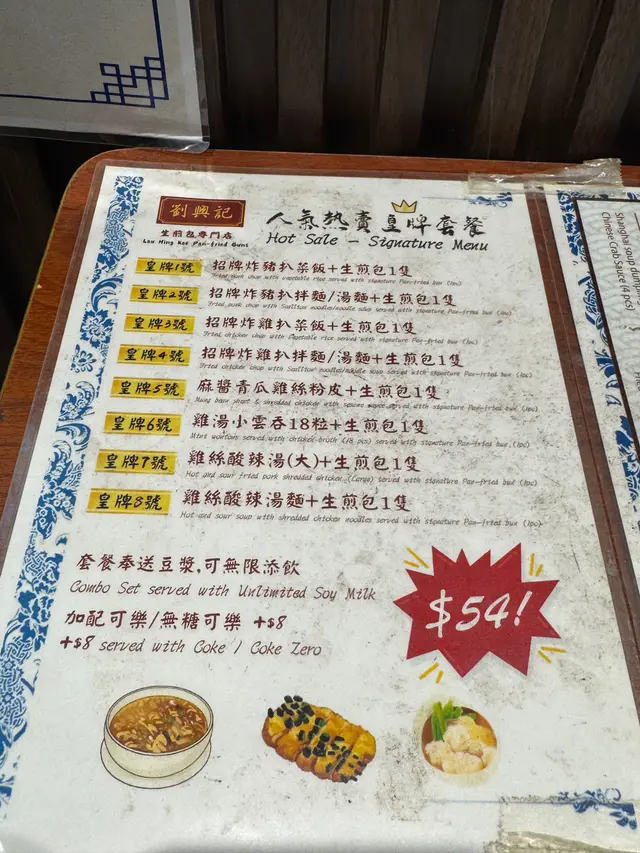 劉興記
生煎包專門店
Lau Hing Kee Pan-fried Buns
人氣熱賣皇牌套餐
Hot Sale - Signature Menu
皇牌1號 招牌炸豬扒菜飯+生煎包1隻
Fried pork chop with vegetable rice served with signature Pan-fried bun (1pc)
皇牌2號 招牌炸豬扒拌麵/湯麵+生煎包1隻
Fried pork chop with Scallion noodles/noodle soup served with signature Pan-fried bun (1pc)
皇牌3號 招牌炸雞扒菜飯+生煎包1隻
Fried chicken chop with vegetable rice served with signature Pan-fried bun (1pc)
皇牌4號 招牌炸雞扒拌麵/湯麵+生煎包1隻
Fried chicken chop with Scallion noodles/noodle soup served with signature Pan-fried bun (1pc)
皇牌5號 麻醬青瓜雞絲粉皮+生煎包1隻
Mung bean sheet & shredded chicken with sesame sauce served with signature Pan-fried bun (1pc)
皇牌6號 雞湯小雲吞18粒+生煎包1隻
Mini wontons served with chicken broth (18 pcs) served with signature Pan-fried bun (1pc)
皇牌7號 雞絲酸辣湯(大)+生煎包1隻
Hot and sour fried pork shredded chicken (Large) served with signature Pan-fried bun (1pc)
皇牌8號 雞絲酸辣湯麵+生煎包1隻
Hot and sour soup with shredded chicken noodles served with signature Pan-fried bun (1pc)
套餐奉送豆漿,可無限添飲
Combo Set served with Unlimited Soy Milk
加配可樂/無糖可樂 +$8
+$8 served with Coke / Coke Zero
$54!
Shanghai soup dumpling
Chinese Crab Sauce (4 pcs)